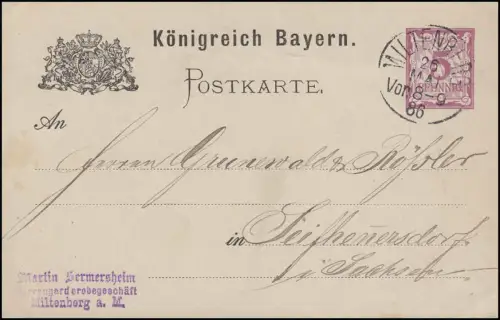 Königreich Bayern.
POSTKARTE.
MILTENBERG
26
MAI
Vor. 8-9
86
5
PFENNIG
An
Herren Grunewald & Rößler
in Seifhennersdorf
i/Sachsen
Martin Germersheim
Herrengarderobegeschäft
Miltenberg a. M.